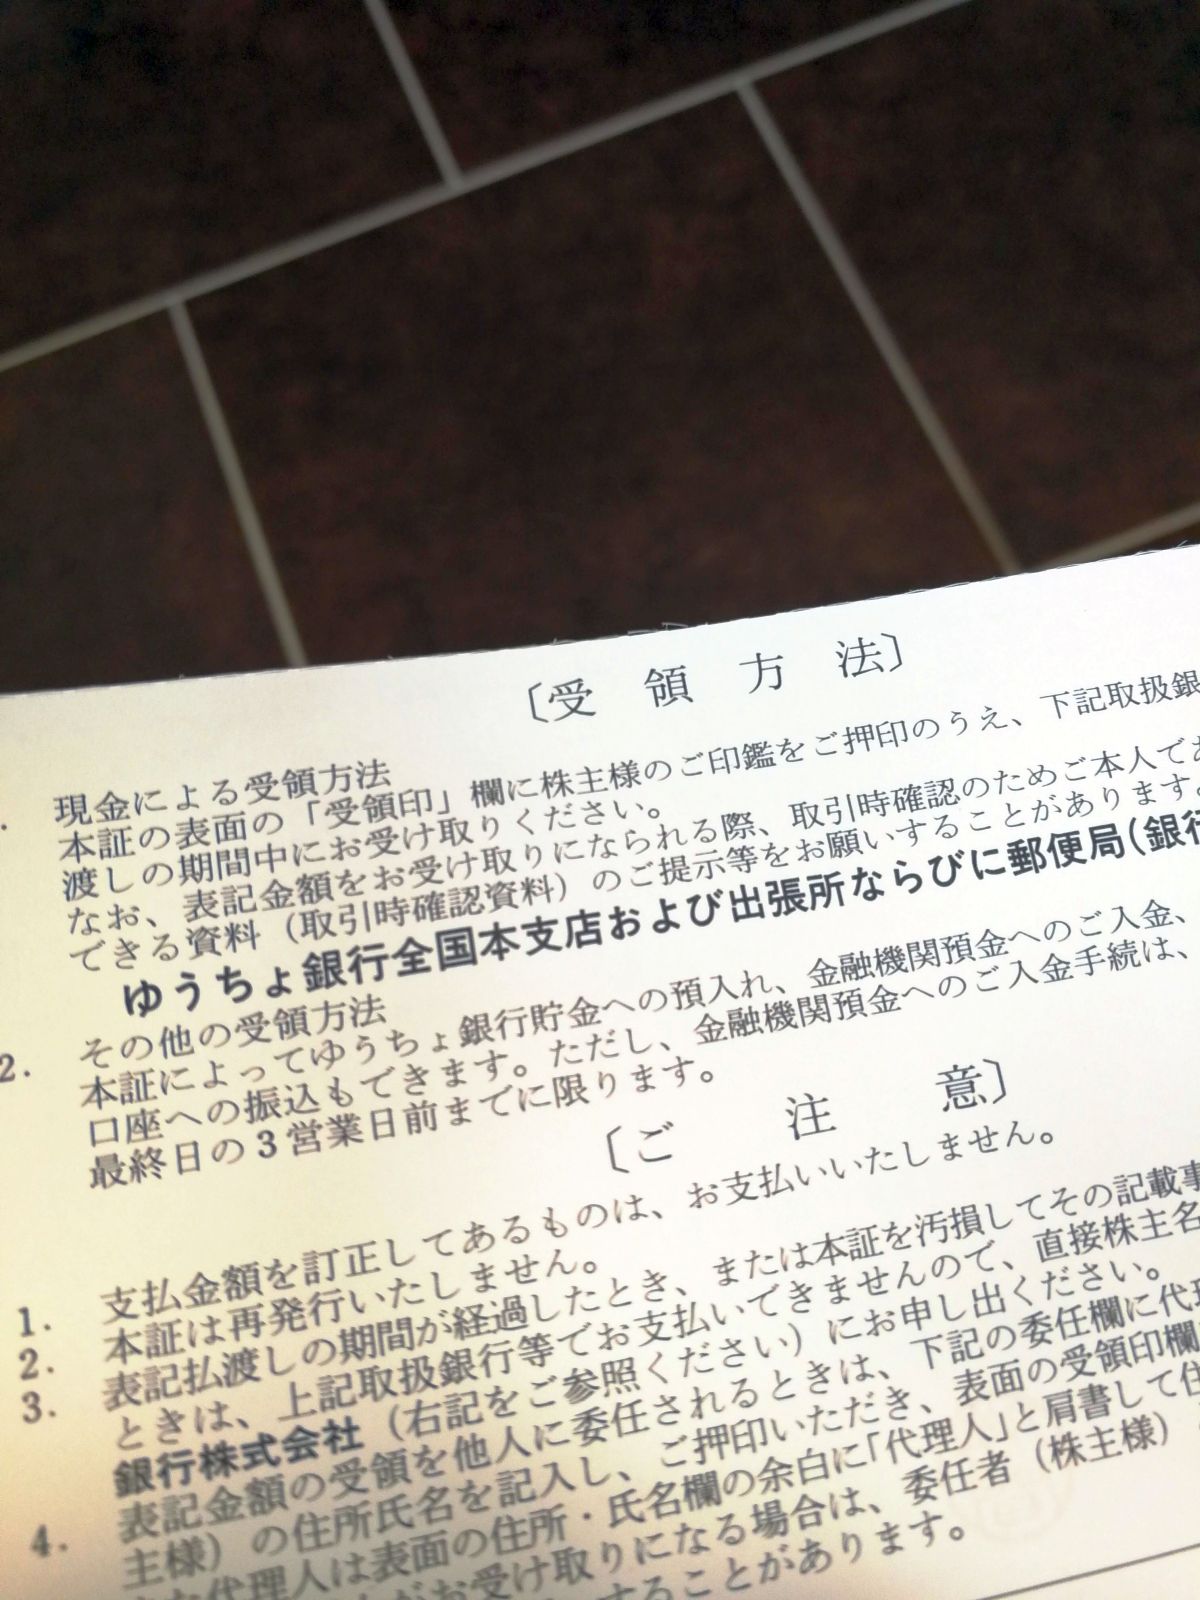 〔受領方法〕
現金による受領方法
本証の表面の「受領印」欄に株主様のご印鑑をご押印のうえ、下記取扱銀
渡しの期間中にお受け取りください。
なお、表記金額をお受け取りになられる際、取引時確認のためご本人であ
できる資料（取引時確認資料）のご提示等をお願いすることがあります。
ゆうちょ銀行全国本支店および出張所ならびに郵便局(銀行
2. その他の受領方法
本証によってゆうちょ銀行貯金への預入れ、金融機関預金へのご入金、
口座への振込もできます。ただし、金融機関預金へのご入金手続は、
最終日の3営業日前までに限ります。
〔ご注意〕
1. 支払金額を訂正してあるものは、お支払いいたしません。
2. 本証は再発行いたしません。
3. 表記払渡しの期間が経過したとき、または本証を汚損してその記載事
ときは、上記取扱銀行等でお支払いできませんので、直接株主名
銀行株式会社（右記をご参照ください）にお申し出ください。
4. 表記金額の受領を他人に委任されるときは、下記の委任欄に代理
主様）の住所氏名を記入し、ご押印いただき、表面の受領印欄
代理人は表面の住所・氏名欄の余白に「代理人」と肩書して住
がお受け取りになる場合は、委任者（株主様）
することがあります。